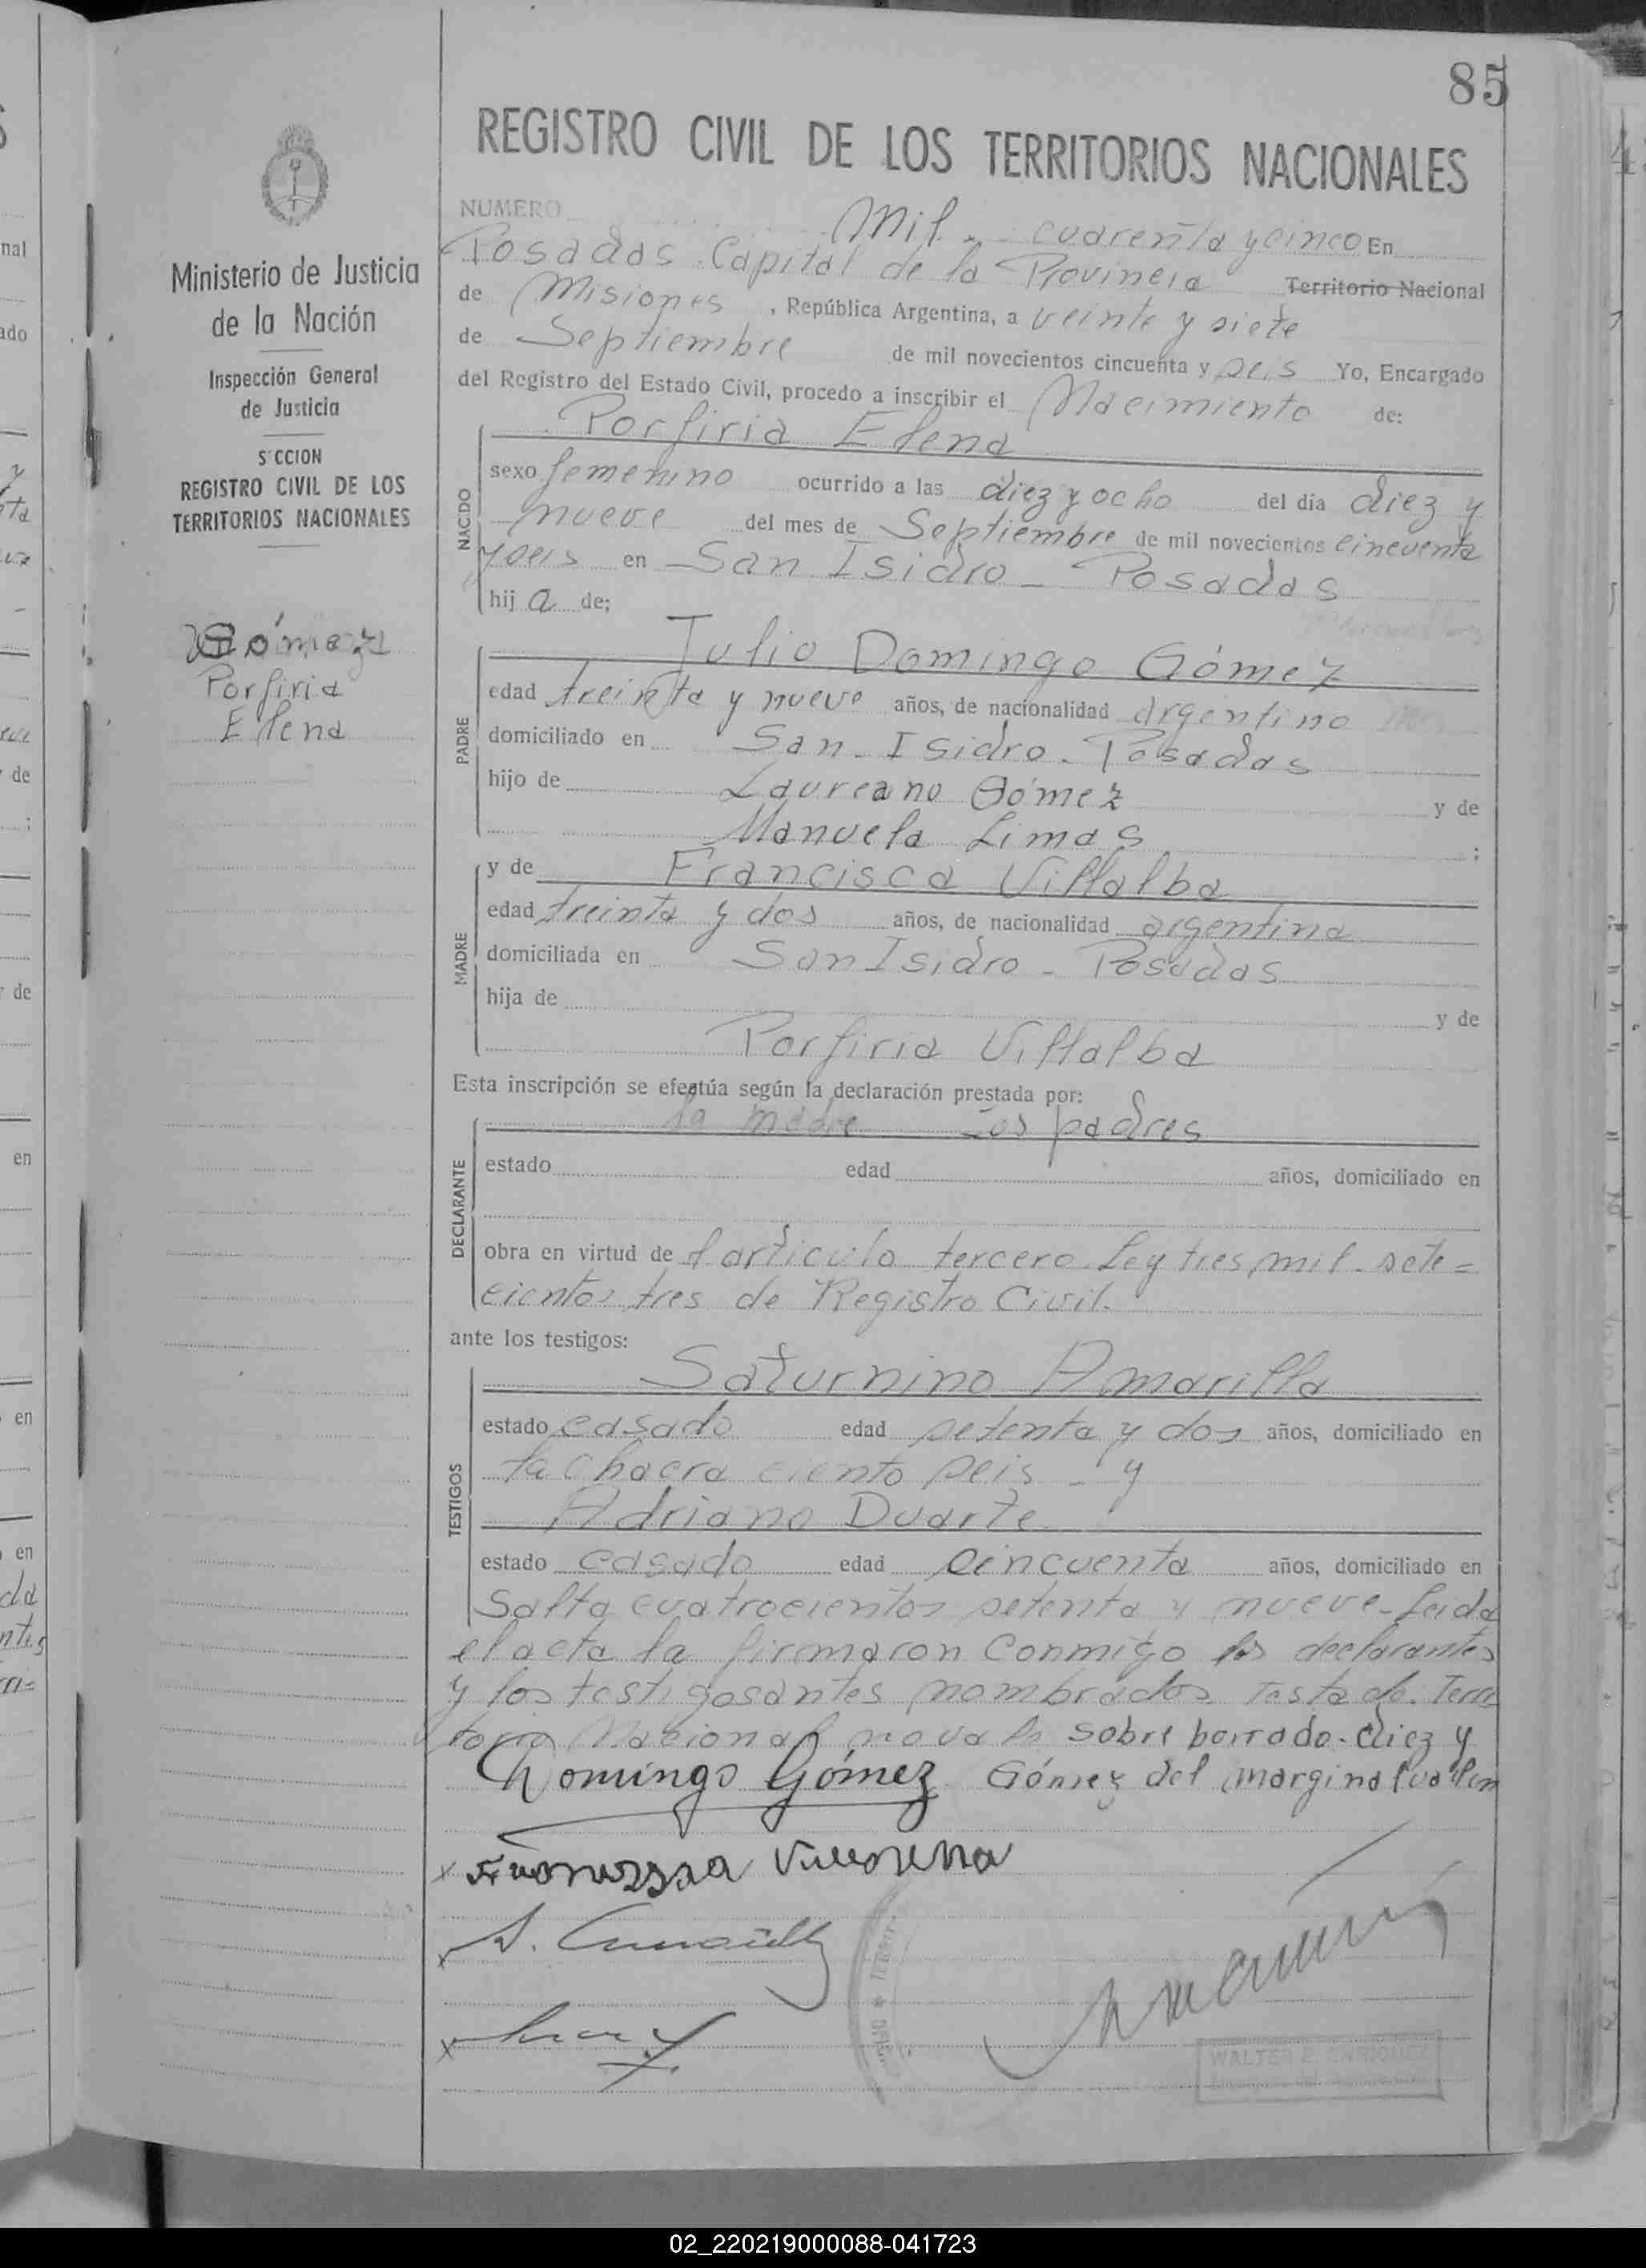 85
REGISTRO CIVIL DE LOS TERRITORIOS NACIONALES
Ministerio de Justicia
de la Nación
Inspección General
de Justicia
S CCION
REGISTRO CIVIL DE LOS
TERRITORIOS NACIONALES
Gómez
Porfiria
Elena
NUMERO Mil cuarenta y cinco En
Posadas Capital de la Provincia Territorio Nacional
de Misiones , República Argentina, a veinte y siete
de Septiembre de mil novecientos cincuenta y seis Yo, Encargado
del Registro del Estado Civil, procedo a inscribir el Nacimiento de:
Porfiria Elena
NACIDO
sexo femenino ocurrido a las diez y ocho del día diez y
nueve del mes de Septiembre de mil novecientos cincuenta
y seis en San Isidro - Posadas
hij a de;
Julio Domingo Gómez
PADRE
edad treinta y nueve años, de nacionalidad argentino
domiciliado en San Isidro - Posadas
hijo de Laureano Gómez y de
Manuela Limas ;
y de Francisca Villalba
MADRE
edad treinta y dos años, de nacionalidad argentina
domiciliada en San Isidro - Posadas
hija de y de
Porfiria Villalba
Esta inscripción se efectúa según la declaración prestada por:
la madre Los padres
DECLARANTE
estado edad años, domiciliado en
obra en virtud de l artículo tercero Ley tres mil sete=
cientos tres de Registro Civil.
ante los testigos:
Saturnino Amarilla
TESTIGOS
estado casado edad setenta y dos años, domiciliado en
la chacra ciento seis - y
Adriano Duarte
estado casado edad cincuenta años, domiciliado en
Salta cuatrocientos setenta y nueve - Leida
el acta la firmaron conmigo los declarantes
y los testigos antes nombrados Testado. Terri
torio Nacional no vale sobre borrado - diez y
Domingo Gómez Gómez del marginal valen
x Villalba
x S. Amarilla
x
WALTER E. ENRIQUEZ
02_220219000088-041723